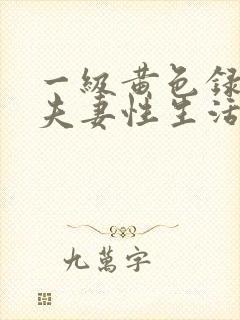 一級黄色録
夫妻性生活
九萬字